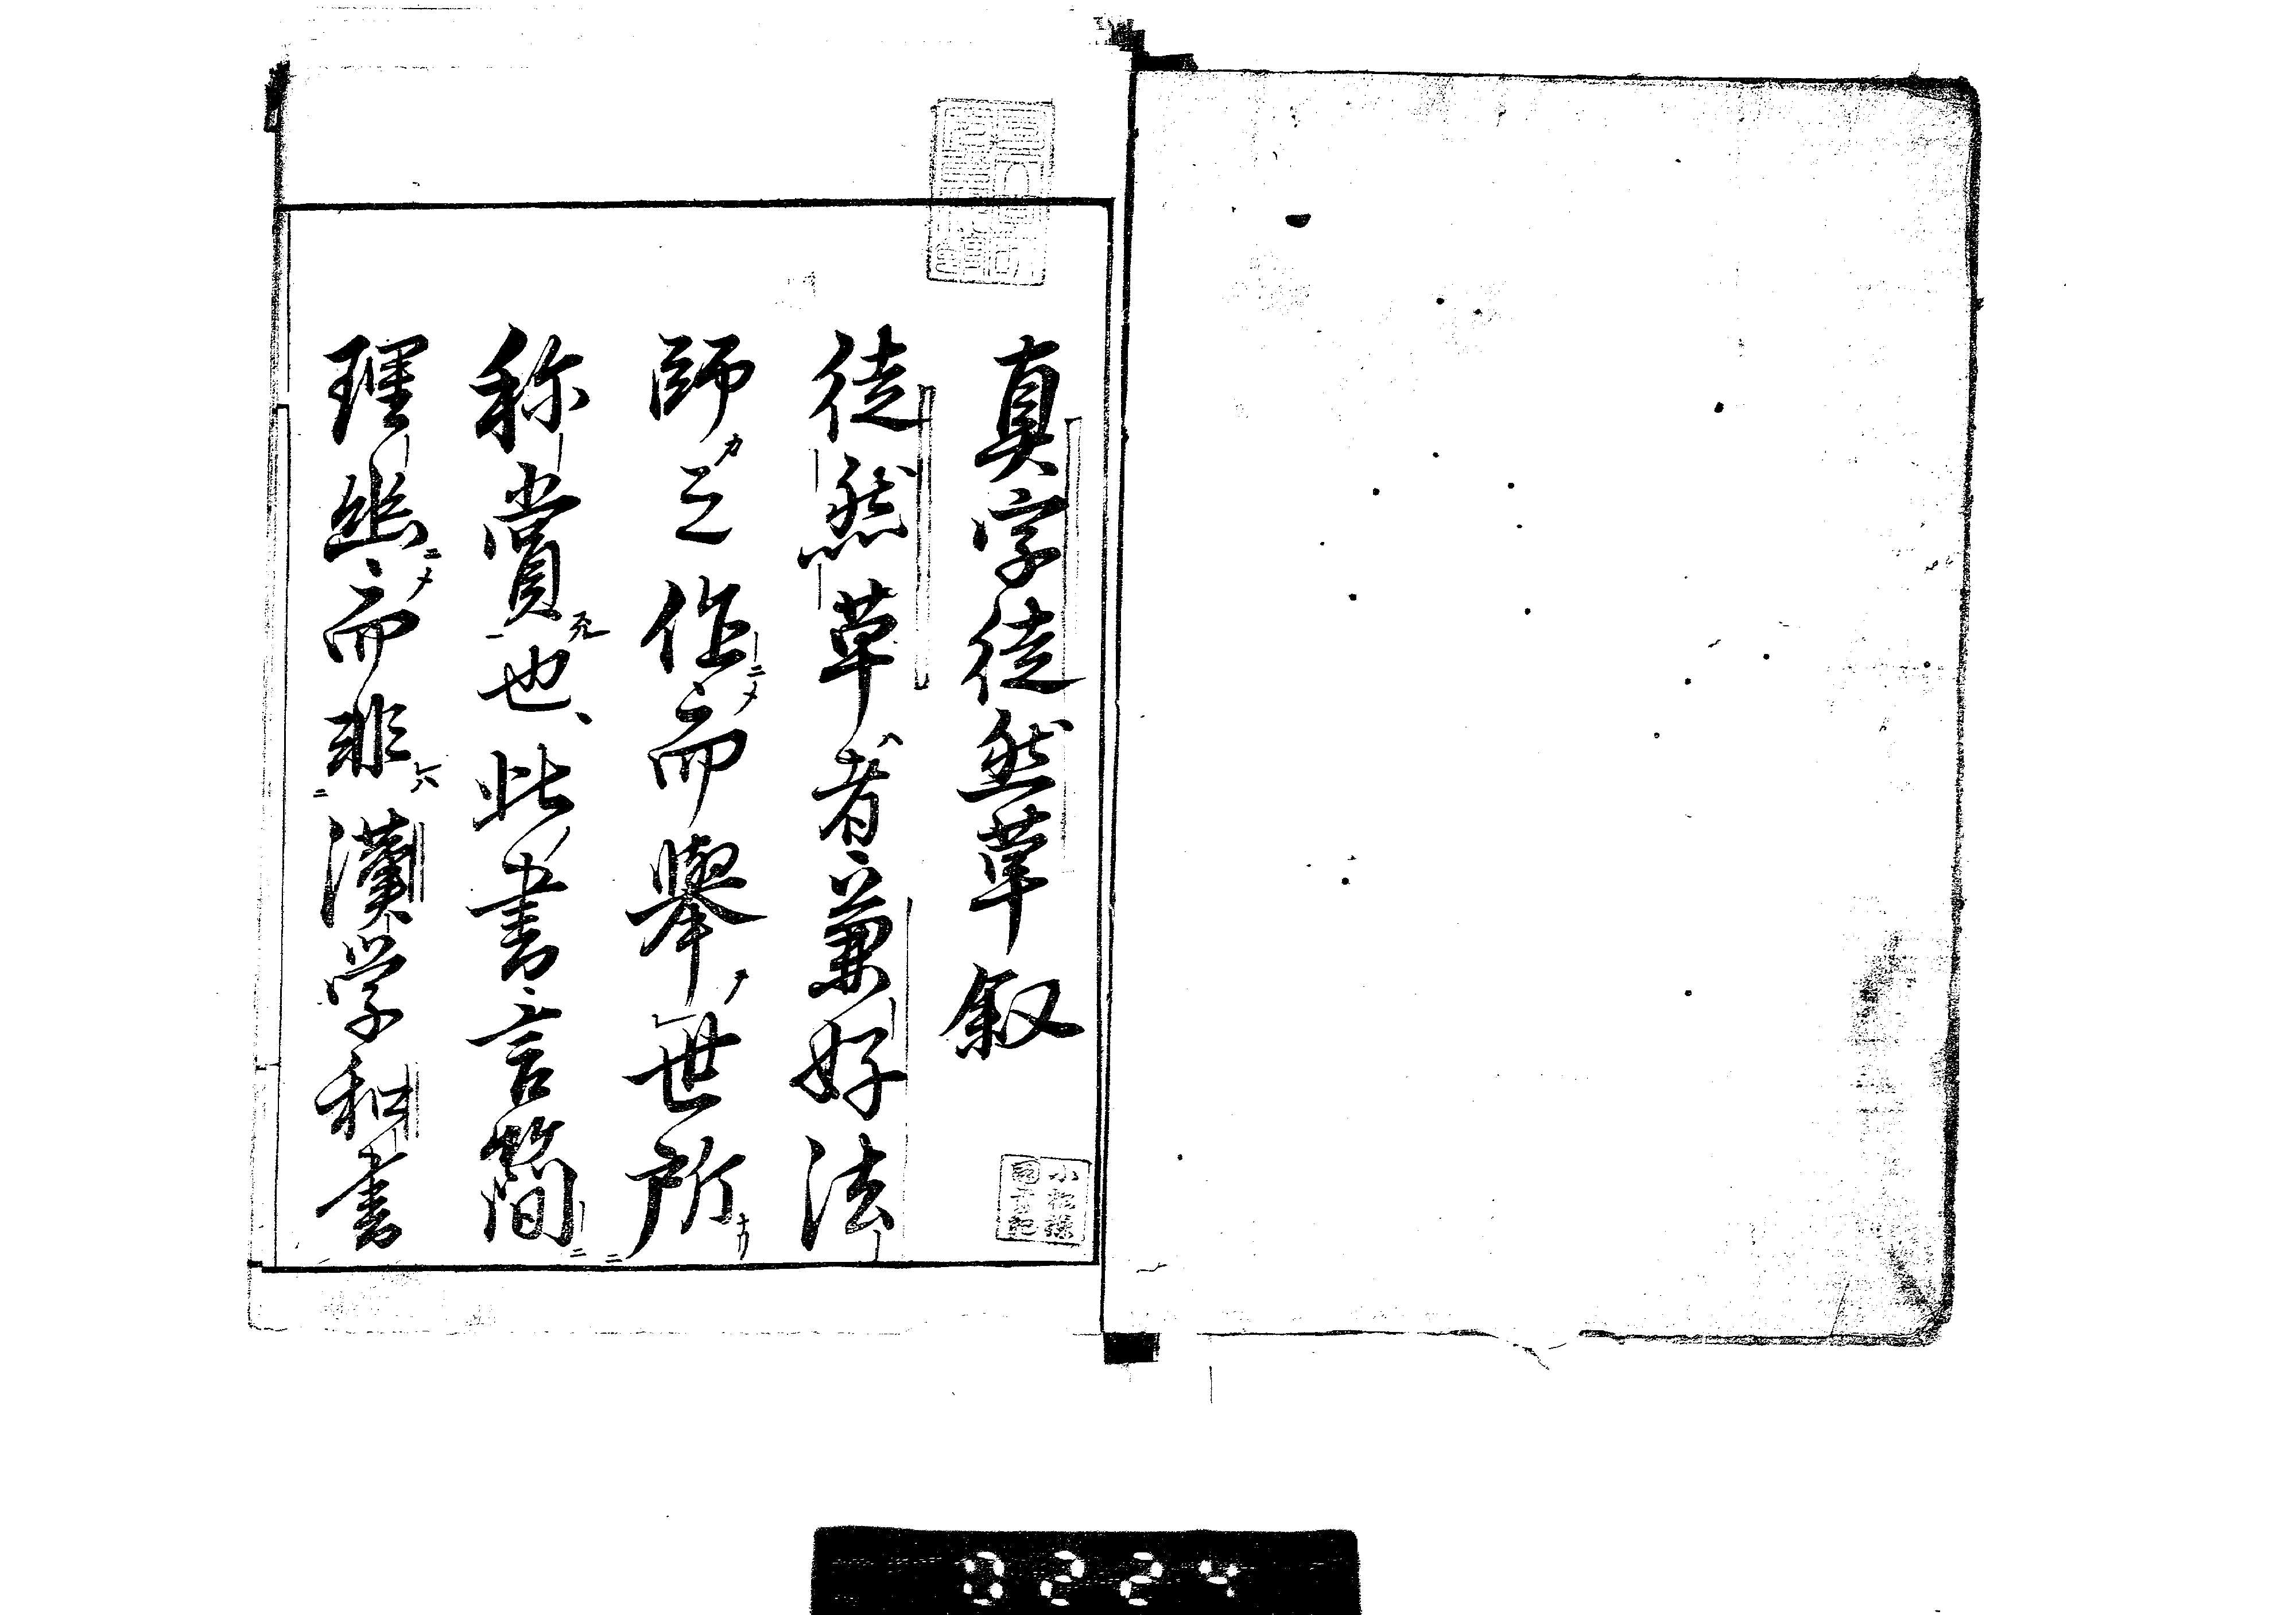 真字徒然草叙
徒然草者兼好法
師之作而舉世所
称賞也、此書言簡
理幽而非漢学和書